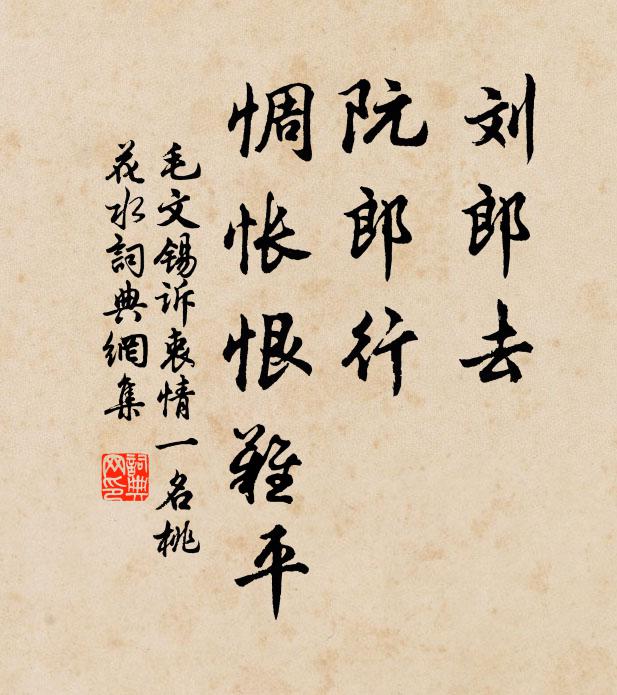 刘郎去
阮郎行
惆怅恨難平
毛文锡诉衷情一名桃
花水詞典網集
詞典
网印